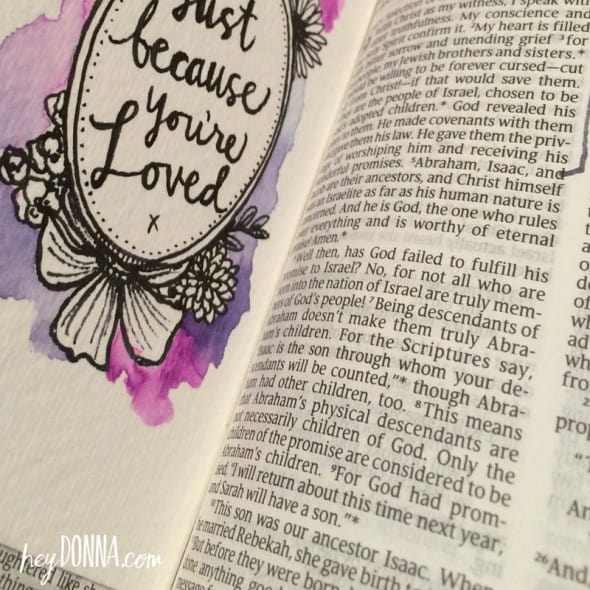 Just
because
you're
Loved
x
heyDONNA.com
with Christ as my witness, I speak with
truthfulness. My conscience and
Spirit confirm it. ²My heart is filled
sorrow and unending grief ³for
my Jewish brothers and sisters.*
be willing to be forever cursed—cut
from Christ!—if that would save them.
are the people of Israel, chosen to be
adopted children.* God revealed his
to them. He made covenants with them
gave them his law. He gave them the priv-
of worshiping him and receiving his
wonderful promises. ⁵Abraham, Isaac, and
are their ancestors, and Christ himself
was an Israelite as far as his human nature is
concerned. And he is God, the one who rules
over everything and is worthy of eternal
praise! Amen.*
Well then, has God failed to fulfill his
promise to Israel? No, for not all who are
born into the nation of Israel are truly mem-
bers of God's people! ⁷Being descendants of
Abraham doesn't make them truly Abra-
ham's children. For the Scriptures say,
"Isaac is the son through whom your de-
scendants will be counted,"* though Abra-
ham had other children, too. ⁸This means
that Abraham's physical descendants are
not necessarily children of God. Only the
children of the promise are considered to be
Abraham's children. ⁹For God had prom-
ised, "I will return about this time next year,
and Sarah will have a son."*
¹⁰This son was our ancestor Isaac. When
he married Rebekah, she gave birth to
But before they were born,
done anything good
message from
²⁶And,